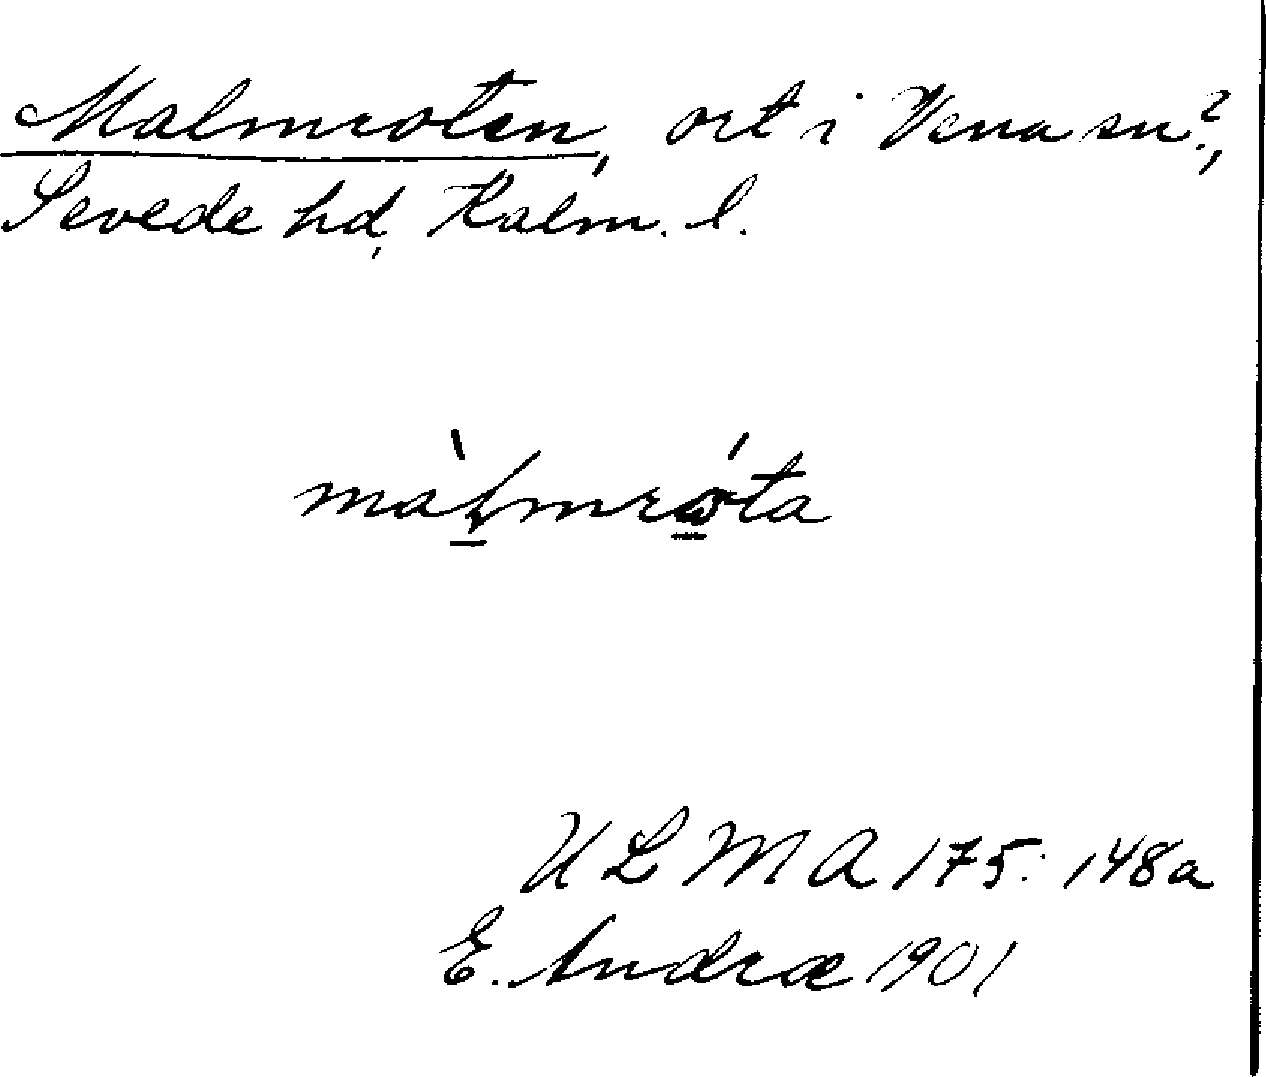 Malmroten, ort i Vena sn?,
Sevede hd, Kalm. l.
màlmróta
ULMA 175: 148a
E. Andræ 1901